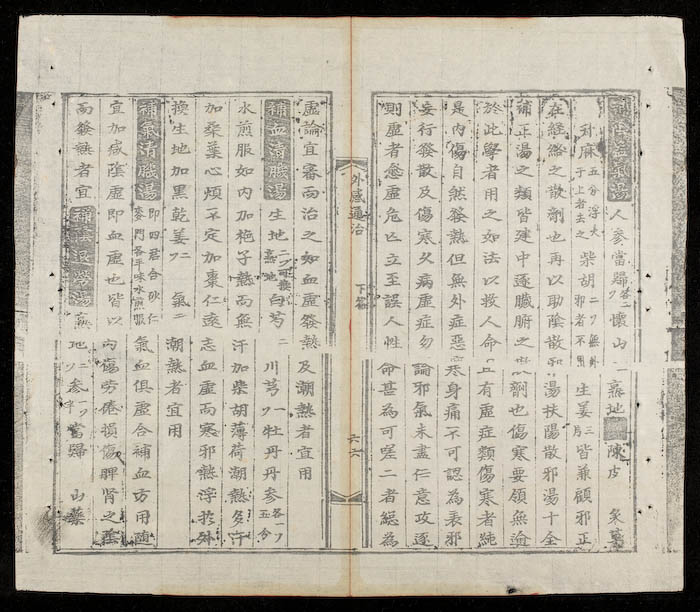 人參當歸各二𠃊懷山一熟地陳皮炙草
升麻五分浮火于上者去之柴胡生姜三片皆兼顧邪正
在經絡之散劑也再以助陰散和湯扶陽散邪湯十全
補正湯之類皆建中逐臟腑之散劑也傷寒要領無踰
於此學者用之如法以救人命且有虛症類傷寒者純
是內傷自然發熱但無外症惡寒身痛不可認為表邪
妄行發散及傷寒久病虛症勿論邪氣未盡仁意攻逐
則虛者愈虛危亡立至誤人性命甚為可嗟二者總為
外感通治 下篇 六六
虛論宜審而治之如血虛發熱及潮熱者宜用
補血清臟湯生地可換熟地白芍二川芎一牡丹丹參各一五分
水煎服如內加梔子熱而無汗加柴胡薄荷潮熱多汗
加桑葉心煩不定加棗仁遠志血虛而寒邪熱浮於外
換生地加黑乾姜二氣二潮熱者宜用
補氣清臟湯即四君合砂仁麥門各平味水煎服氣血俱虛合補血方用隨
宜加減陰虛即血虛也皆以內傷勞倦損傷脾腎之
而發熱者宜補陰湯熟地參當歸山藥